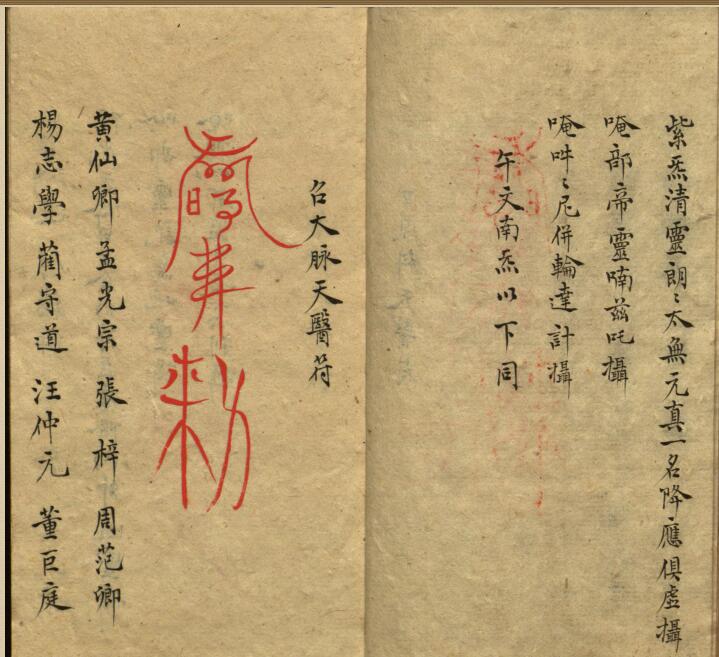 紫炁清靈朗〻太無元真一名降應俱虛攝
唵部帝靈喃兹吒攝
唵吽〻尼併輪達計攝
午文南炁以下同
召大脉天醫符
勑
黄仙卿 孟光宗 張梓 周范卿
楊志學 藺守道 汪仲元 董巨庭